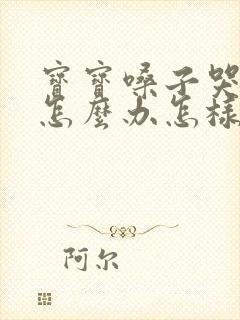 寶寶嗓子哭
怎麼办怎樣
阿尔